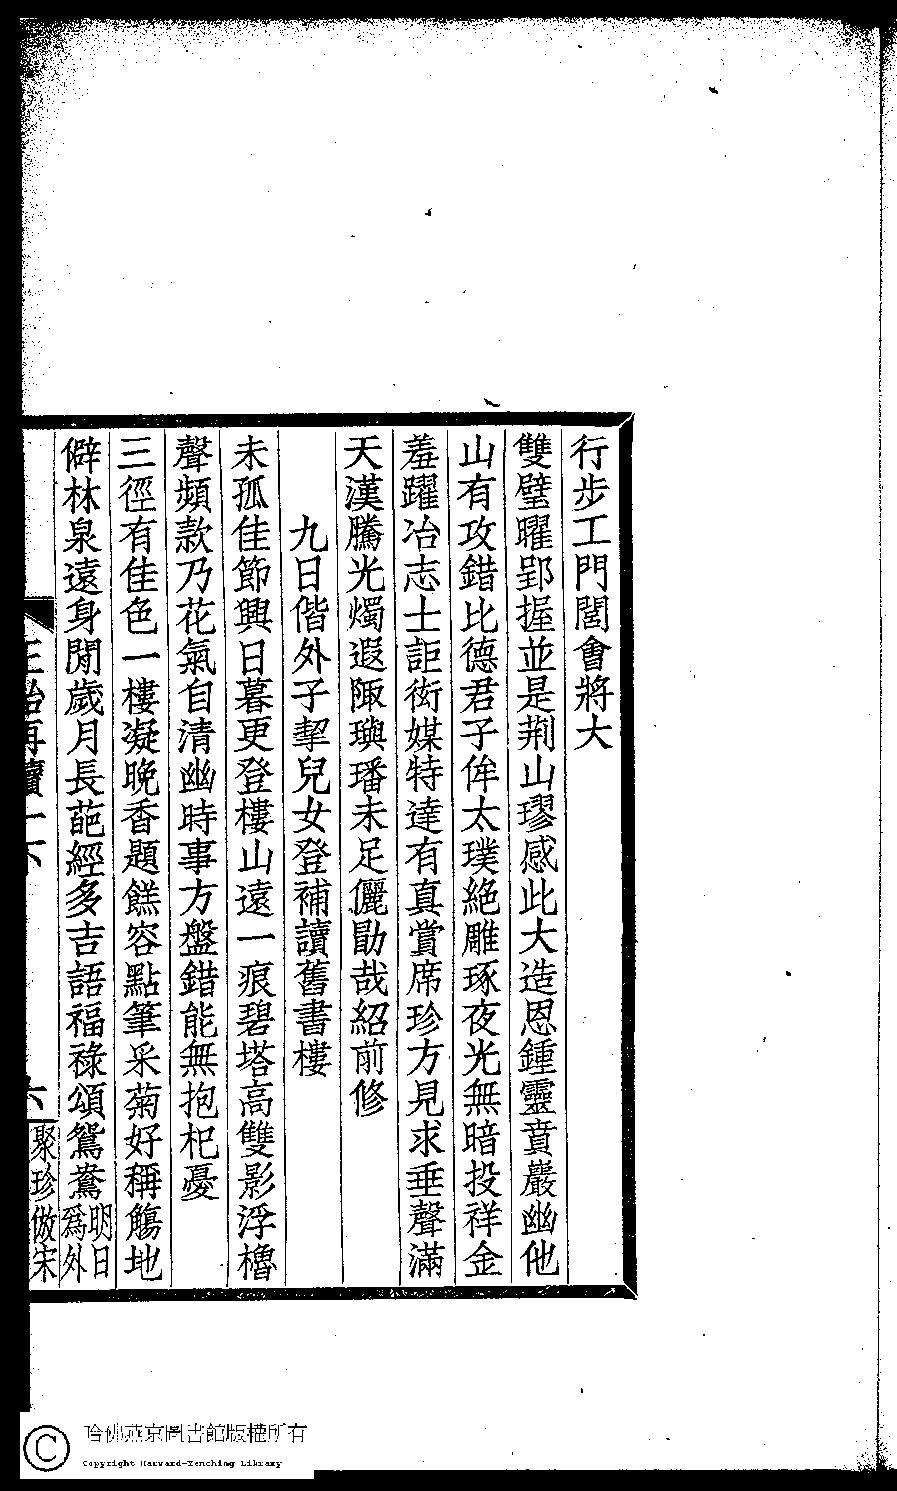 行步工門閭會將大
雙璧曜郢握並是荆山璆感此大造恩鍾靈賁巖幽他
山有攻錯比德君子侔太璞絕雕琢夜光無暗投祥金
羞躍冶志士詎衒媒特達有真賞席珍方見求垂聲滿
天漢騰光燭遐陬璵璠未足儷勖哉紹前修
九日偕外子挈兒女登補讀舊書樓
未孤佳節興日暮更登樓山遠一痕碧塔高雙影浮櫓
聲頻款乃花氣自清幽時事方盤錯能無抱杞憂
三徑有佳色一樓凝晚香題餻容點筆采菊好稱觴地
僻林泉遠身閒歲月長葩經多吉語福祿頌鴛鴦明日
爲外
再續
六
聚珍倣宋
哈佛燕京圖書館版權所有
Copyright Harvard-Yenching Library